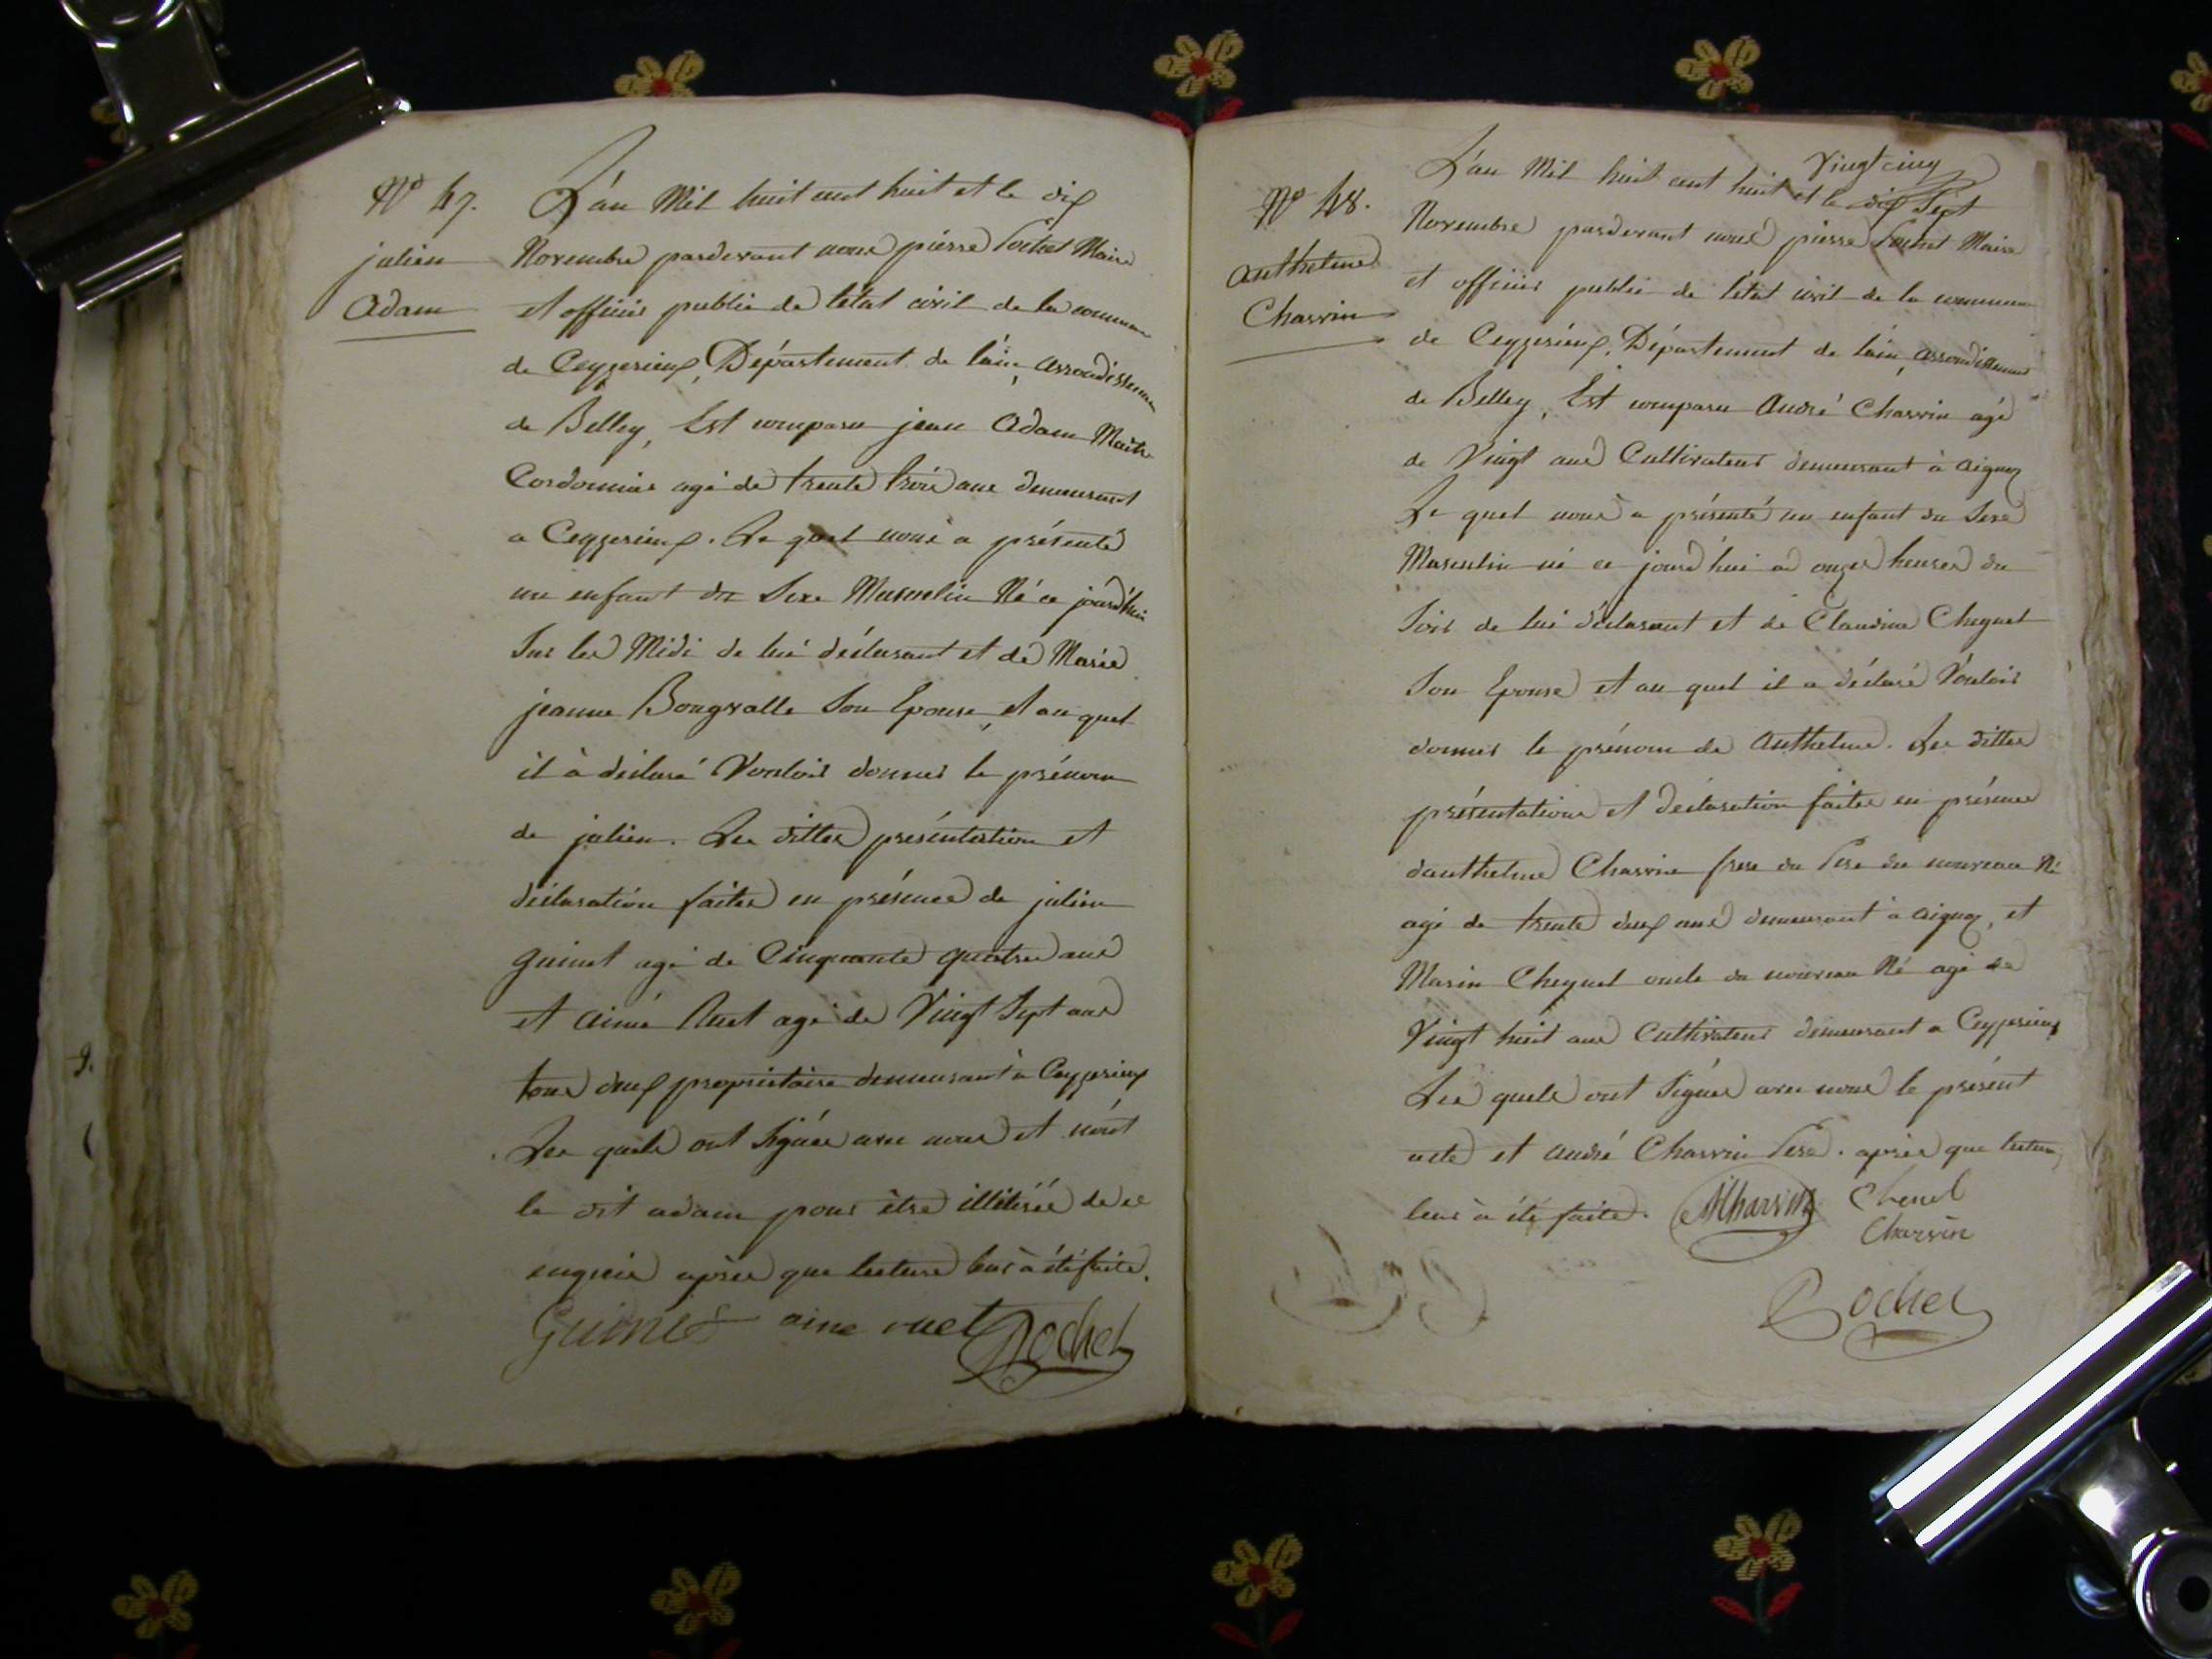 N° 47.
julien
Adam
L'an Mil huit cent huit et le dix
Novembre pardevant nous pierre Pochet Maire
et officier public de l'état civil de la commune
de Ceyzerieux, Département de l'ain, arrondissement
de Belley, Est comparu jean Adam Maitre
Cordonnier agé de trente trois ans demeurant
a Ceyzerieux. Le quel nous a présenté
un enfant du Sexe Masculin Né ce jourd'hui
Sur les Midi de lui déclarant et de Marie
jeanne Son Epouse, et au quel
il à déclaré Vouloir donner le prénom
de julien. Les dittes présentation et
déclaration faites en présence de julien
guinet agé de Cinquante quatre ans
et aimé Ruet agé de Vingt Sept ans
tous deux propriétaire demeurant à Ceyzerieux
Les quels ont Signés avec nous et non
le dit adam pour être illitéré de ce
enquis après que lecture leur à été faite.
Guinet aime ruet Pochet
N° 48.
Anthelme
Charvin
Vingt cinq
L'an Mil huit cent huit et le dix Sept
Novembre pardevant nous pierre Pochet Maire
et officier public de l'état civil de la commune
de Ceyzerieux, Département de l'ain, arrondissement
de Belley, Est comparu André Charvin agé
de Vingt ans Cultivateur demeurant à aignoz
Le quel nous a présenté un enfant du Sexe
Masculin né ce jourd'hui a onze heures du
Soir de lui déclarant et de Claudine
Son Epouse et au quel il a déclaré Vouloir
donner le prénom de Anthelme. Les dittes
présentations et déclaration faites en présence
d'anthelme Charvin frere du Pere du nouveau Né
agé de trente deux ans demeurant à aignoz, et
Marin oncle du nouveau Né agé de
Vingt huit ans Cultivateur demeurant a Ceyzerieux
Les quels ont Signés avec nous le présent
acte et André Charvin Pere. après que lecture
leur à été faite. Charvin
Charvin
Pochet